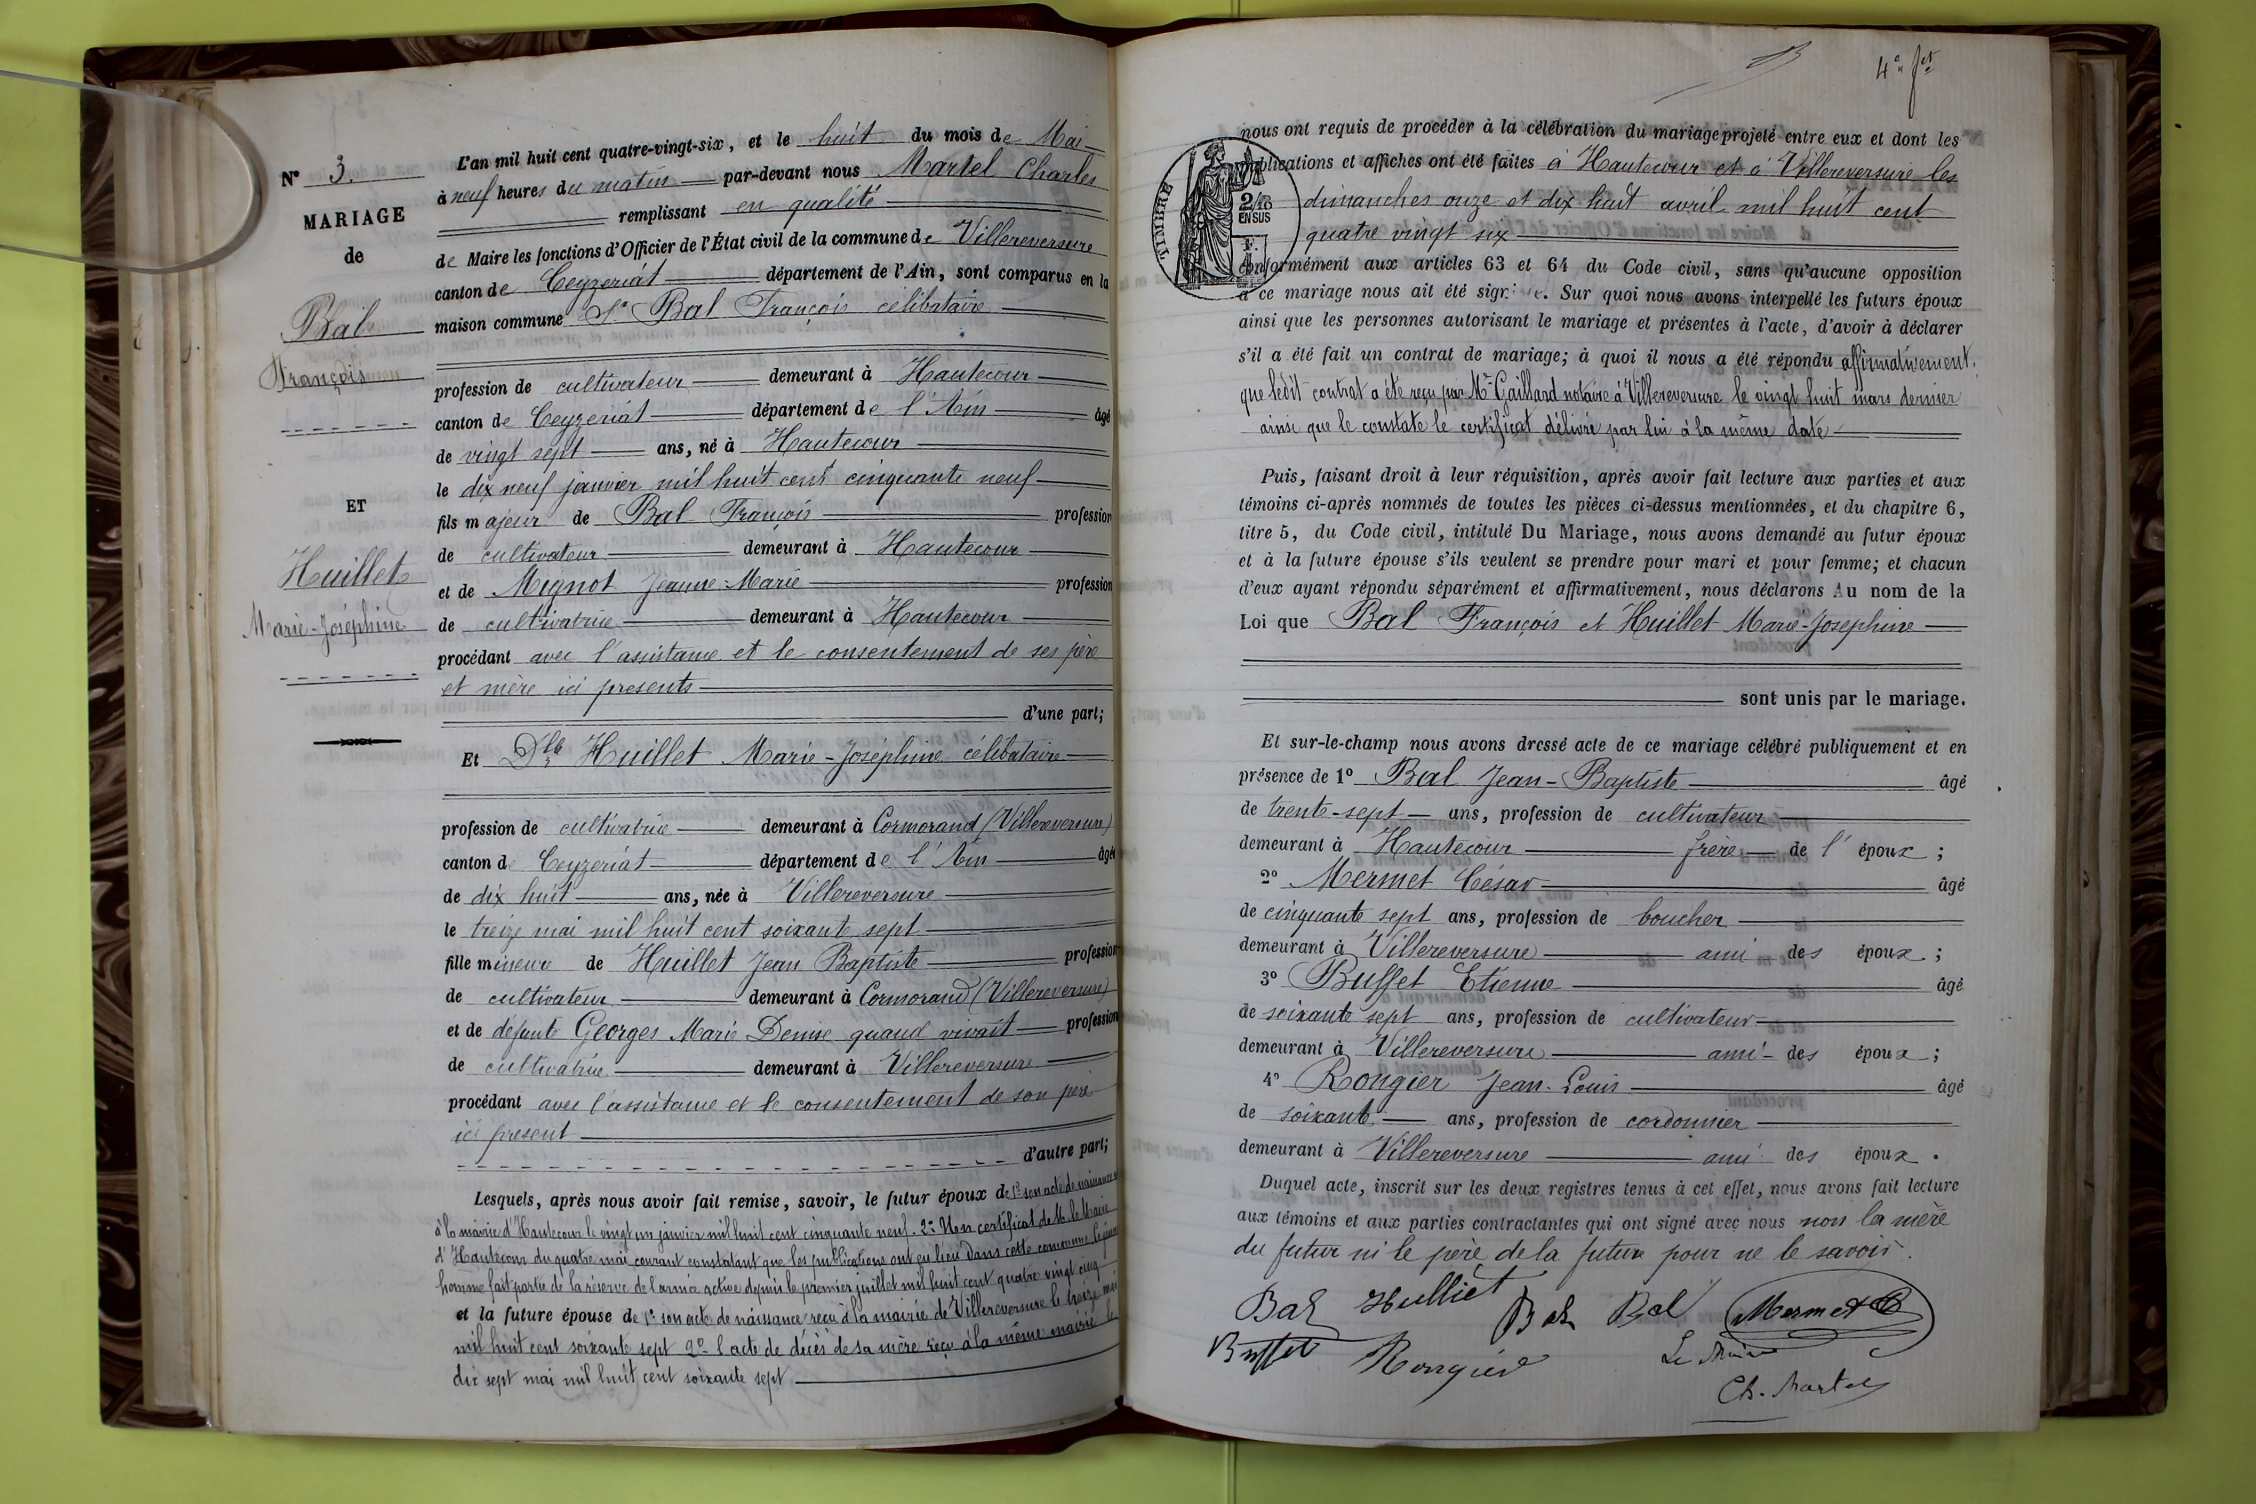 N° 3.
MARIAGE
de
Bal
François
ET
Huillet
Marie-Joséphine
L'an mil huit cent quatre-vingt-six, et le huit du mois de Mai
à neuf heures du matin par-devant nous Martel Charles
remplissant en qualité
de Maire les fonctions d'Officier de l'État civil de la commune de Villereversure
canton de Ceyzeriat département de l'Ain, sont comparus en la
maison commune Sr Bal François célibataire
profession de cultivateur demeurant à Hautecour
canton de Ceyzeriat département de l'Ain âgé
de vingt sept ans, né à Hautecour
le dix neuf janvier mil huit cent cinquante neuf
fils majeur de Bal François profession
de cultivateur demeurant à Hautecour
et de Mignot Jeanne-Marie profession
de cultivatrice demeurant à Hautecour
procédant avec l'assistance et le consentement de ses père
et mère ici presents
d'une part;
Et Dlle Huillet Marie-Joséphine célibataire
profession de cultivatrice demeurant à Cormorand (Villereversure)
canton de Ceyzeriat département de l'Ain âgée
de dix huit ans, née à Villereversure
le treize mai mil huit cent soixante sept
fille mineure de Huillet Jean Baptiste profession
de cultivateur demeurant à Cormorand (Villereversure)
et de défunte Georges Marie Denise quand vivait profession
de cultivatrice demeurant à Villereversure
procédant avec l'assistance et le consentement de son père
ici present
d'autre part;
Lesquels, après nous avoir fait remise, savoir, le futur époux de 1° son acte de naissance
à la mairie d'Hautecour le vingt un janvier mil huit cent cinquante neuf. 2° Un certificat de M. le Maire
d'Hautecour du quatre mai courant constatant que les publications ont eu lieu dans cette commune. Le jeune
homme fait partie de la réserve de l'armée active depuis le premier juillet mil huit cent quatre vingt cinq
et la future épouse de 1° son acte de naissance reçu à la mairie de Villereversure le treize mai
mil huit cent soixante sept 2° l'acte de décès de sa mère reçu à la même mairie le
dix sept mai mil huit cent soixante sept
4e fet
nous ont requis de procéder à la célébration du mariage projeté entre eux et dont les
publications et affiches ont été faites à Hautecour et à Villereversure les
dimanches onze et dix huit avril mil huit cent
quatre vingt six
TIMBRE
2/10
EN SUS
F.
conformément aux articles 63 et 64 du Code civil, sans qu'aucune opposition
à ce mariage nous ait été signifiée. Sur quoi nous avons interpellé les futurs époux
ainsi que les personnes autorisant le mariage et présentes à l'acte, d'avoir à déclarer
s'il a été fait un contrat de mariage; à quoi il nous a été répondu affirmativement.
que ledit contrat a été reçu par Me Gaillard notaire à Villereversure le vingt huit mars dernier
ainsi que le constate le certificat délivré par lui à la même date
Puis, faisant droit à leur réquisition, après avoir fait lecture aux parties et aux
témoins ci-après nommés de toutes les pièces ci-dessus mentionnées, et du chapitre 6,
titre 5, du Code civil, intitulé Du Mariage, nous avons demandé au futur époux
et à la future épouse s'ils veulent se prendre pour mari et pour femme; et chacun
d'eux ayant répondu séparément et affirmativement, nous déclarons Au nom de la
Loi que Bal François et Huillet Marie-Josephine
sont unis par le mariage.
Et sur-le-champ nous avons dressé acte de ce mariage célébré publiquement et en
présence de 1° Bal Jean-Baptiste âgé
de trente-sept ans, profession de cultivateur
demeurant à Hautecour frère de l'époux ;
2° Mermet César âgé
de cinquante sept ans, profession de boucher
demeurant à Villereversure ami des époux ;
3° Buffet Etienne âgé
de soixante sept ans, profession de cultivateur
demeurant à Villereversure ami des époux ;
4° Rongier Jean-Louis âgé
de soixante ans, profession de cordonnier
demeurant à Villereversure ami des époux .
Duquel acte, inscrit sur les deux registres tenus à cet effet, nous avons fait lecture
aux témoins et aux parties contractantes qui ont signé avec nous non la mère
du futur ni le père de la future pour ne le savoir.
Bal Hulliet Bal Bal Mermet
Buffet Rongier Le Maire
Ch. Martel